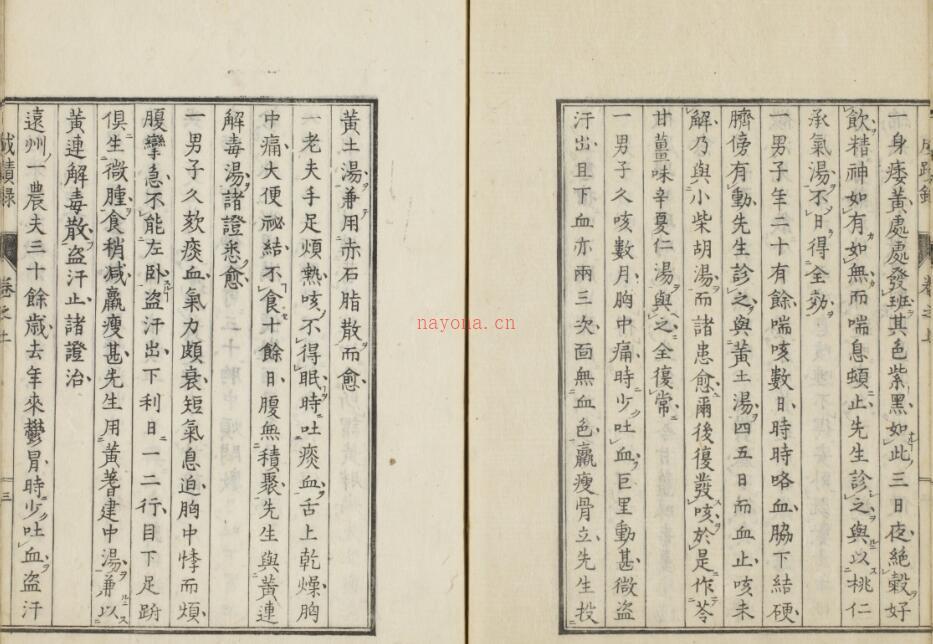 一身痿黄處處發斑其色紫黑如此三日夜絶穀好
飲精神如有如無而喘息頓止先生診之與以桃仁
承氣湯不日得全効
一男子年二十有餘喘咳數日時時咯血脇下結硬
臍傍有動先生診之與黄土湯四五日而血止咳未
解乃與小柴胡湯而諸患愈爾後復發咳於是作苓
甘薑味辛夏仁湯與之全復常
一男子久咳數月胸中痛時少吐血巨里動甚微盗
汗出且下血亦兩三次面無血色羸瘦骨立先生投
黄土湯兼用赤石脂散而愈
一老夫手足煩熱咳不得眠時吐痰血舌上乾燥胸
中痛大便祕結不食十餘日腹無積聚先生與黄連
解毒湯諸證悉愈
一男子久欬痰血氣力頗衰短氣息迫胸中悸而煩
腹攣急不能左卧盗汗出下利日一二行目下足跗
俱生微腫食稍減羸瘦甚先生用黄蓍建中湯兼以
黄連解毒散盗汗止諸證治
遠州一農夫三十餘歳去年來鬱冒時少吐血盗汗
成績録
卷之上
三
nayona.cn